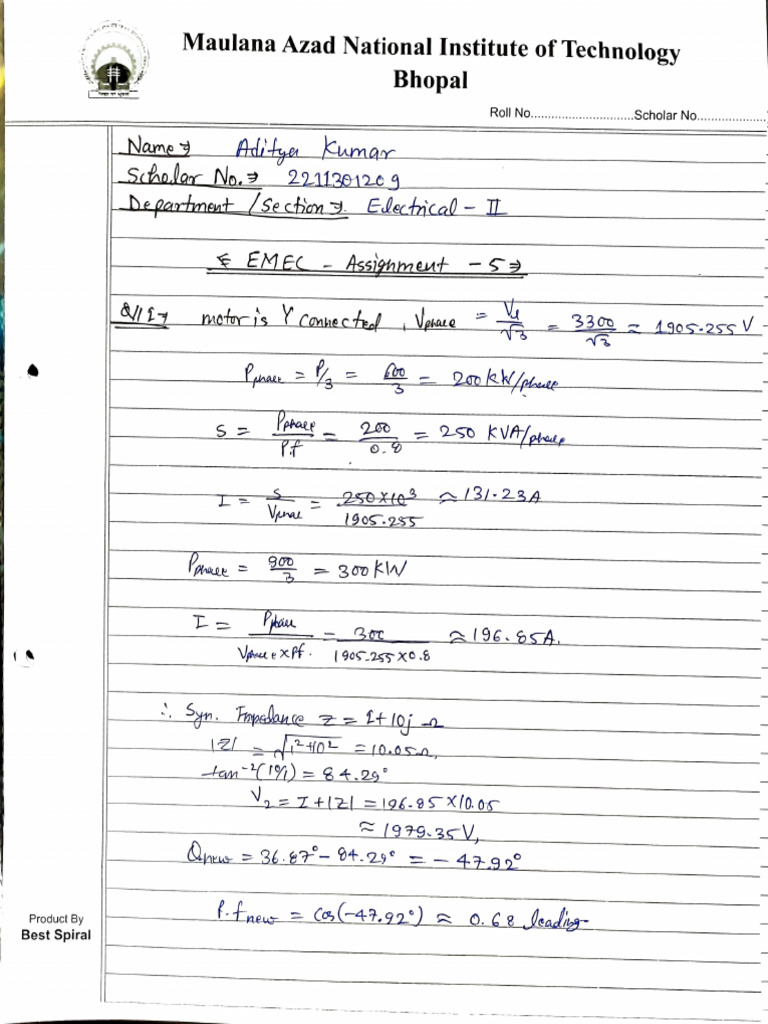 Maulana Azad National Institute of Technology
Bhopal
Roll No............................Scholar No...................
Name ⇒ Aditya Kumar
Scholar No. ⇒ 2211301209
Department /Section ⇒ Electrical - II
⇐ EMEC - Assignment - 5 ⇒
Q/1 I→ motor is Y connected, Vphase = Vl/√3 = 3300/√3 ≈ 1905.255 V
Pphase = P/3 = 600/3 = 200 kW/phase
S = Pphase/P.f = 200/0.8 = 250 KVA/phase
I = S/Vphase = 250×10³/1905.255 ≈ 131.23A
Pphase = 900/3 = 300 KW
I = Pphase/Vphase×Pf. = 300/1905.255×0.8 ≈ 196.85A.
∴ Syn. Impedance z = 1+10j Ω
|Z| = √1²+10² = 10.05Ω,
tan⁻²(10/1) = 84.29°
V2 = I+|Z| = 196.85×10.05
≈ 1979.35 V,
Qnew = 36.87° - 84.29° = - 47.92°
P.fnew = Cos(-47.92°) ≈ 0.68 leading
Product By
Best Spiral